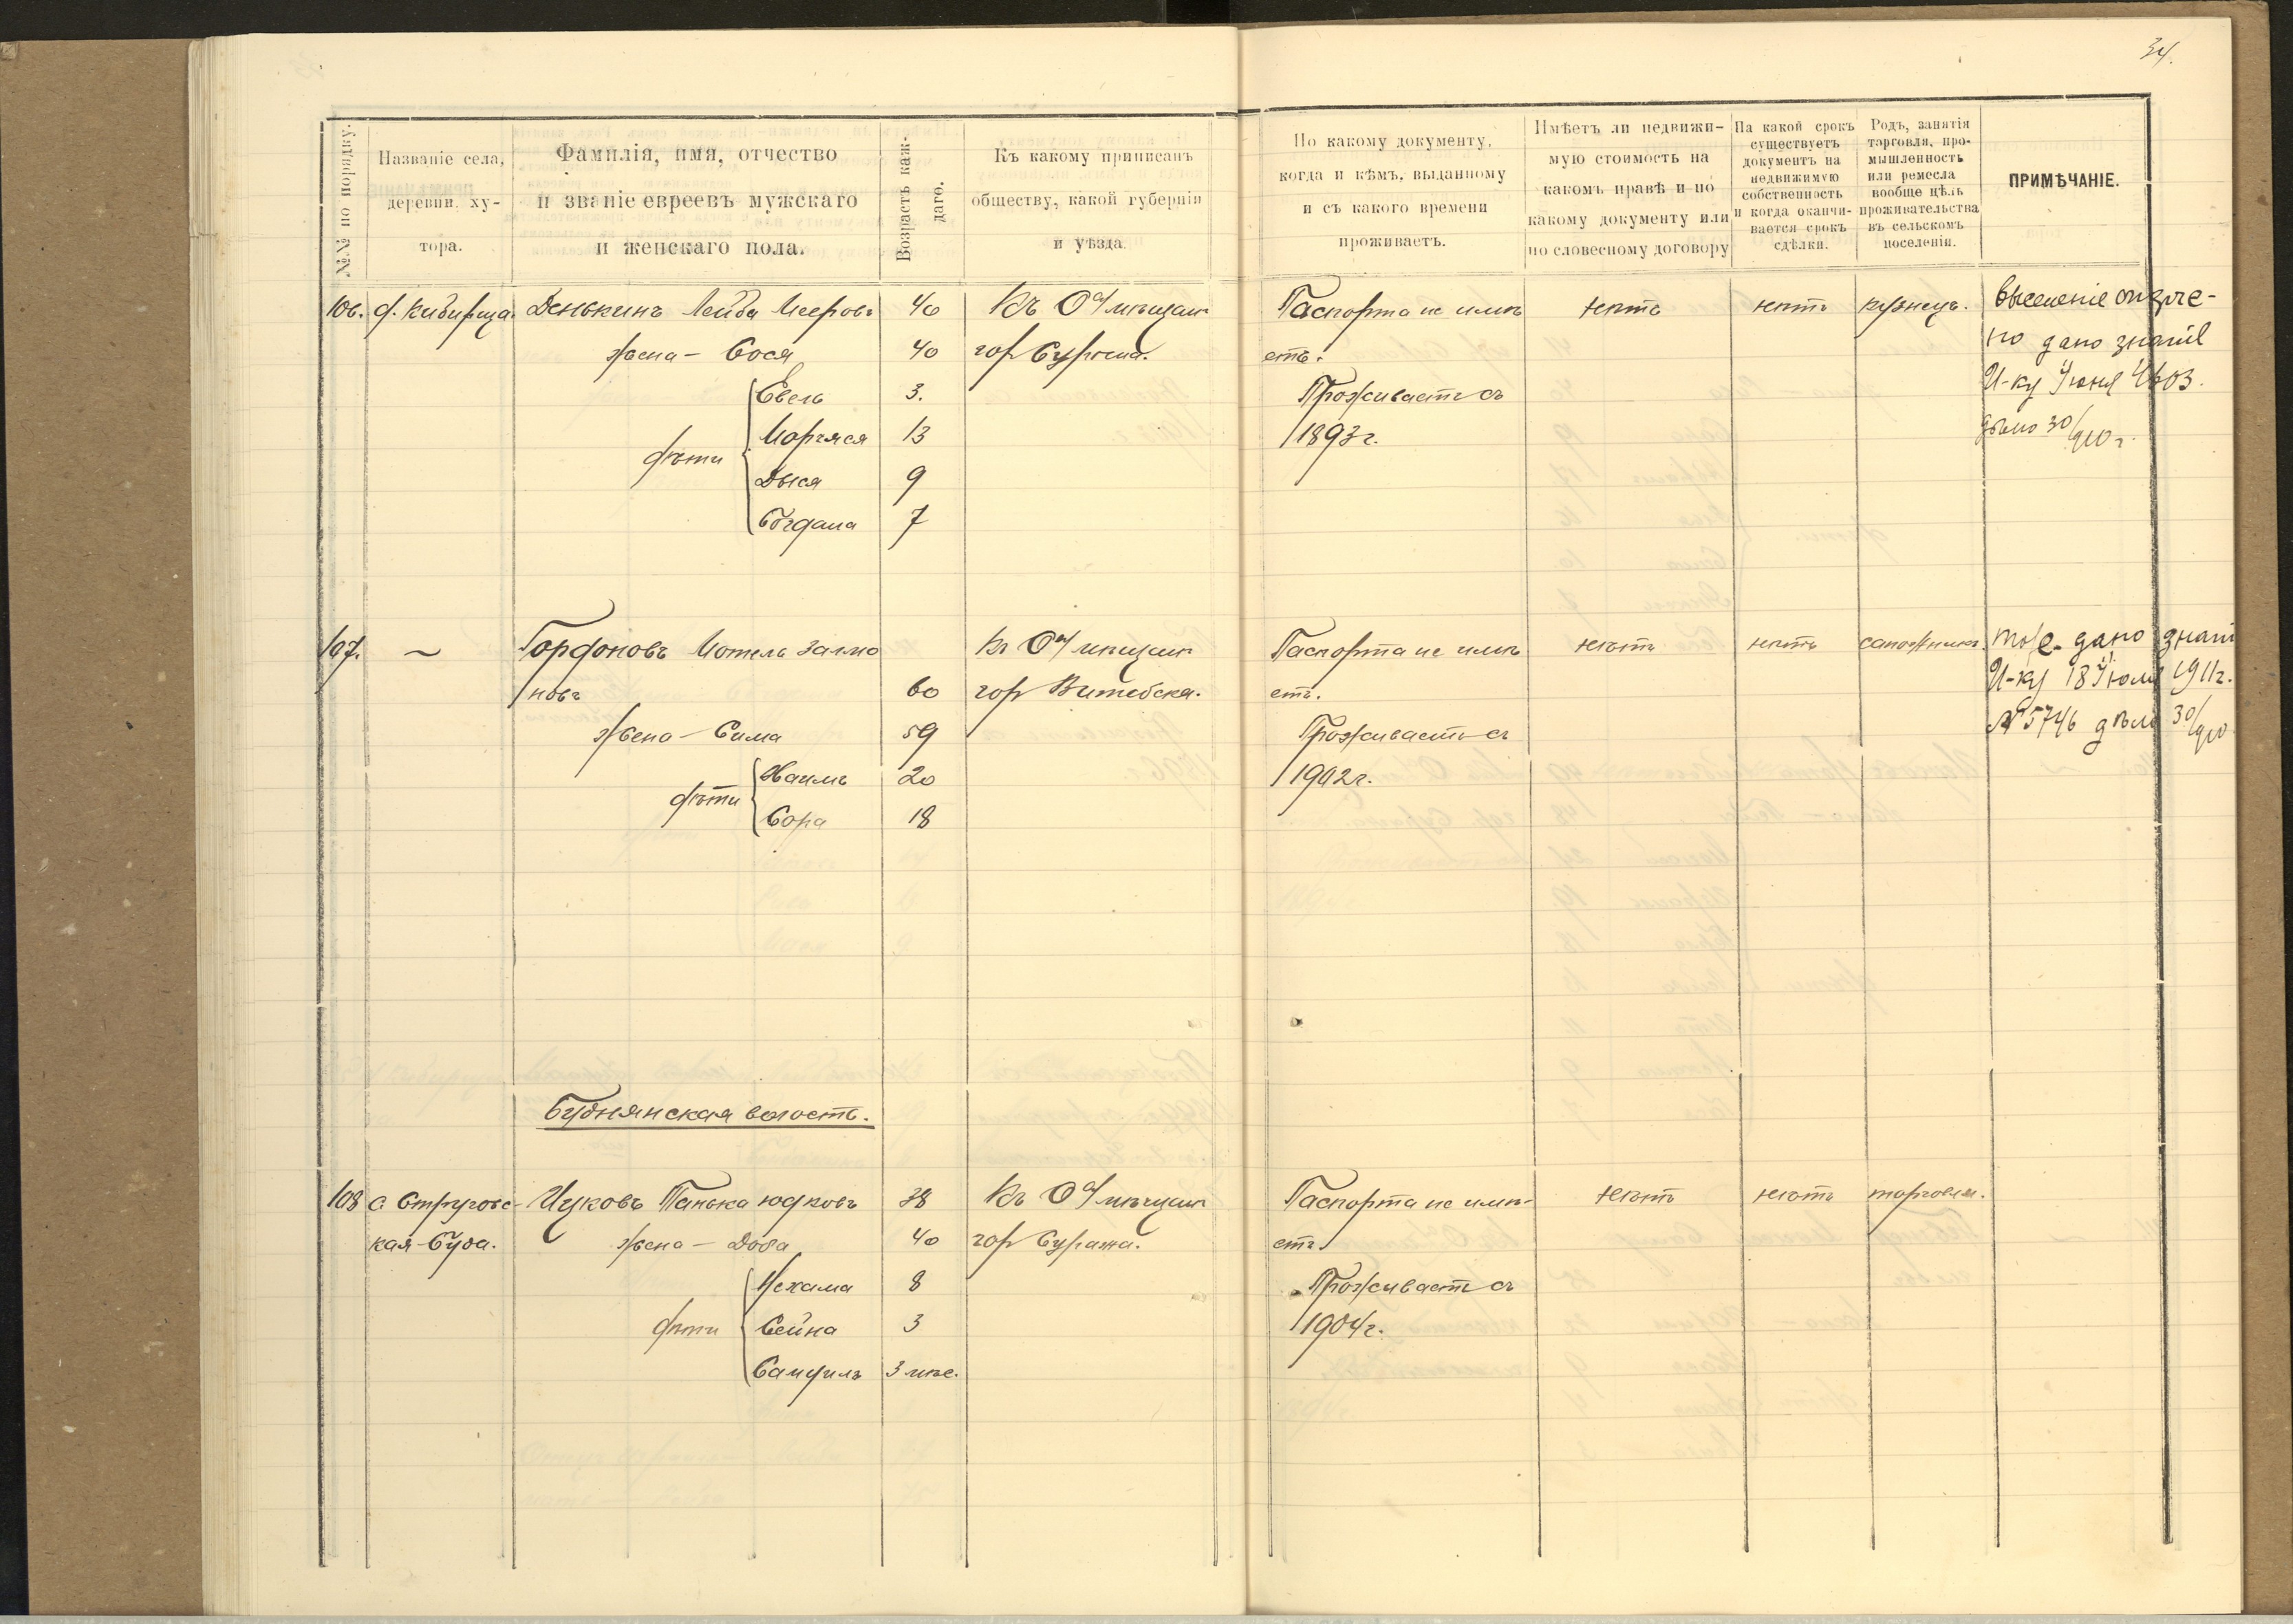 34.
№№ по порядку.
Названіе села, деревни, ху-
тора.
Фамилія, имя, отчество
и званіе евреевъ мужскаго
и женскаго пола.
Возрастъ каж-
даго.
Къ какому приписанъ
обществу, какой губерніи
и уѣзда.
По какому документу,
когда и кѣмъ, выданному
и съ какого времени
проживаетъ.
Имѣетъ ли недвижи-
мую стоимость на
какомъ правѣ и по
какому документу или
по словесному договору
На какой срокъ
существуетъ
документъ на
недвижимую
собственность
и когда оканчи-
вается срокъ
сдѣлки.
Родъ, занятія
торговля, про-
мышленность
или ремесла
вообще цѣль
проживательства
въ сельскомъ
поселеніи.
ПРИМѢЧАНІЕ.
106. д. Кибирща. Денькинъ Лейба Мееровъ 40 Къ О-ву мѣщан Паспорта не имѣ нѣтъ нѣтъ кузнецъ. Выселеніе отсроче-
жена - Сося 40 гор Суража. етъ. но дано знать
Евель 3. Проживаетъ съ И-ку Іюня 1903.
дѣти Моряся 13 1893 г. дѣло 30/910 г.
Дыся 9
Богдана 7
107. ~ Гордоновъ Мотель Залмо Къ О-ву мѣщан Паспорта не имѣ нѣтъ нѣтъ сапожникъ. тоже дано знать
новъ 60 гор Витебска. етъ. И-ку 18 Іюля 1911 г.
жена - Сима 59 Проживаетъ съ № 5746 дѣло 30/910
дѣти Хаимъ 20 1902 г.
Сора 18
Буднянская волость.
108 с Стругове- Цуковъ Танька Юдковъ 38 Къ О-ву мѣщан Паспорта не имѣ- нѣтъ нѣтъ торговля.
кая-Буда. жена - Доба 40 гор Суража. етъ.
Нехама 8 Проживаетъ съ
дѣти Сейна 3 1904 г.
Самуилъ 3 мѣс.